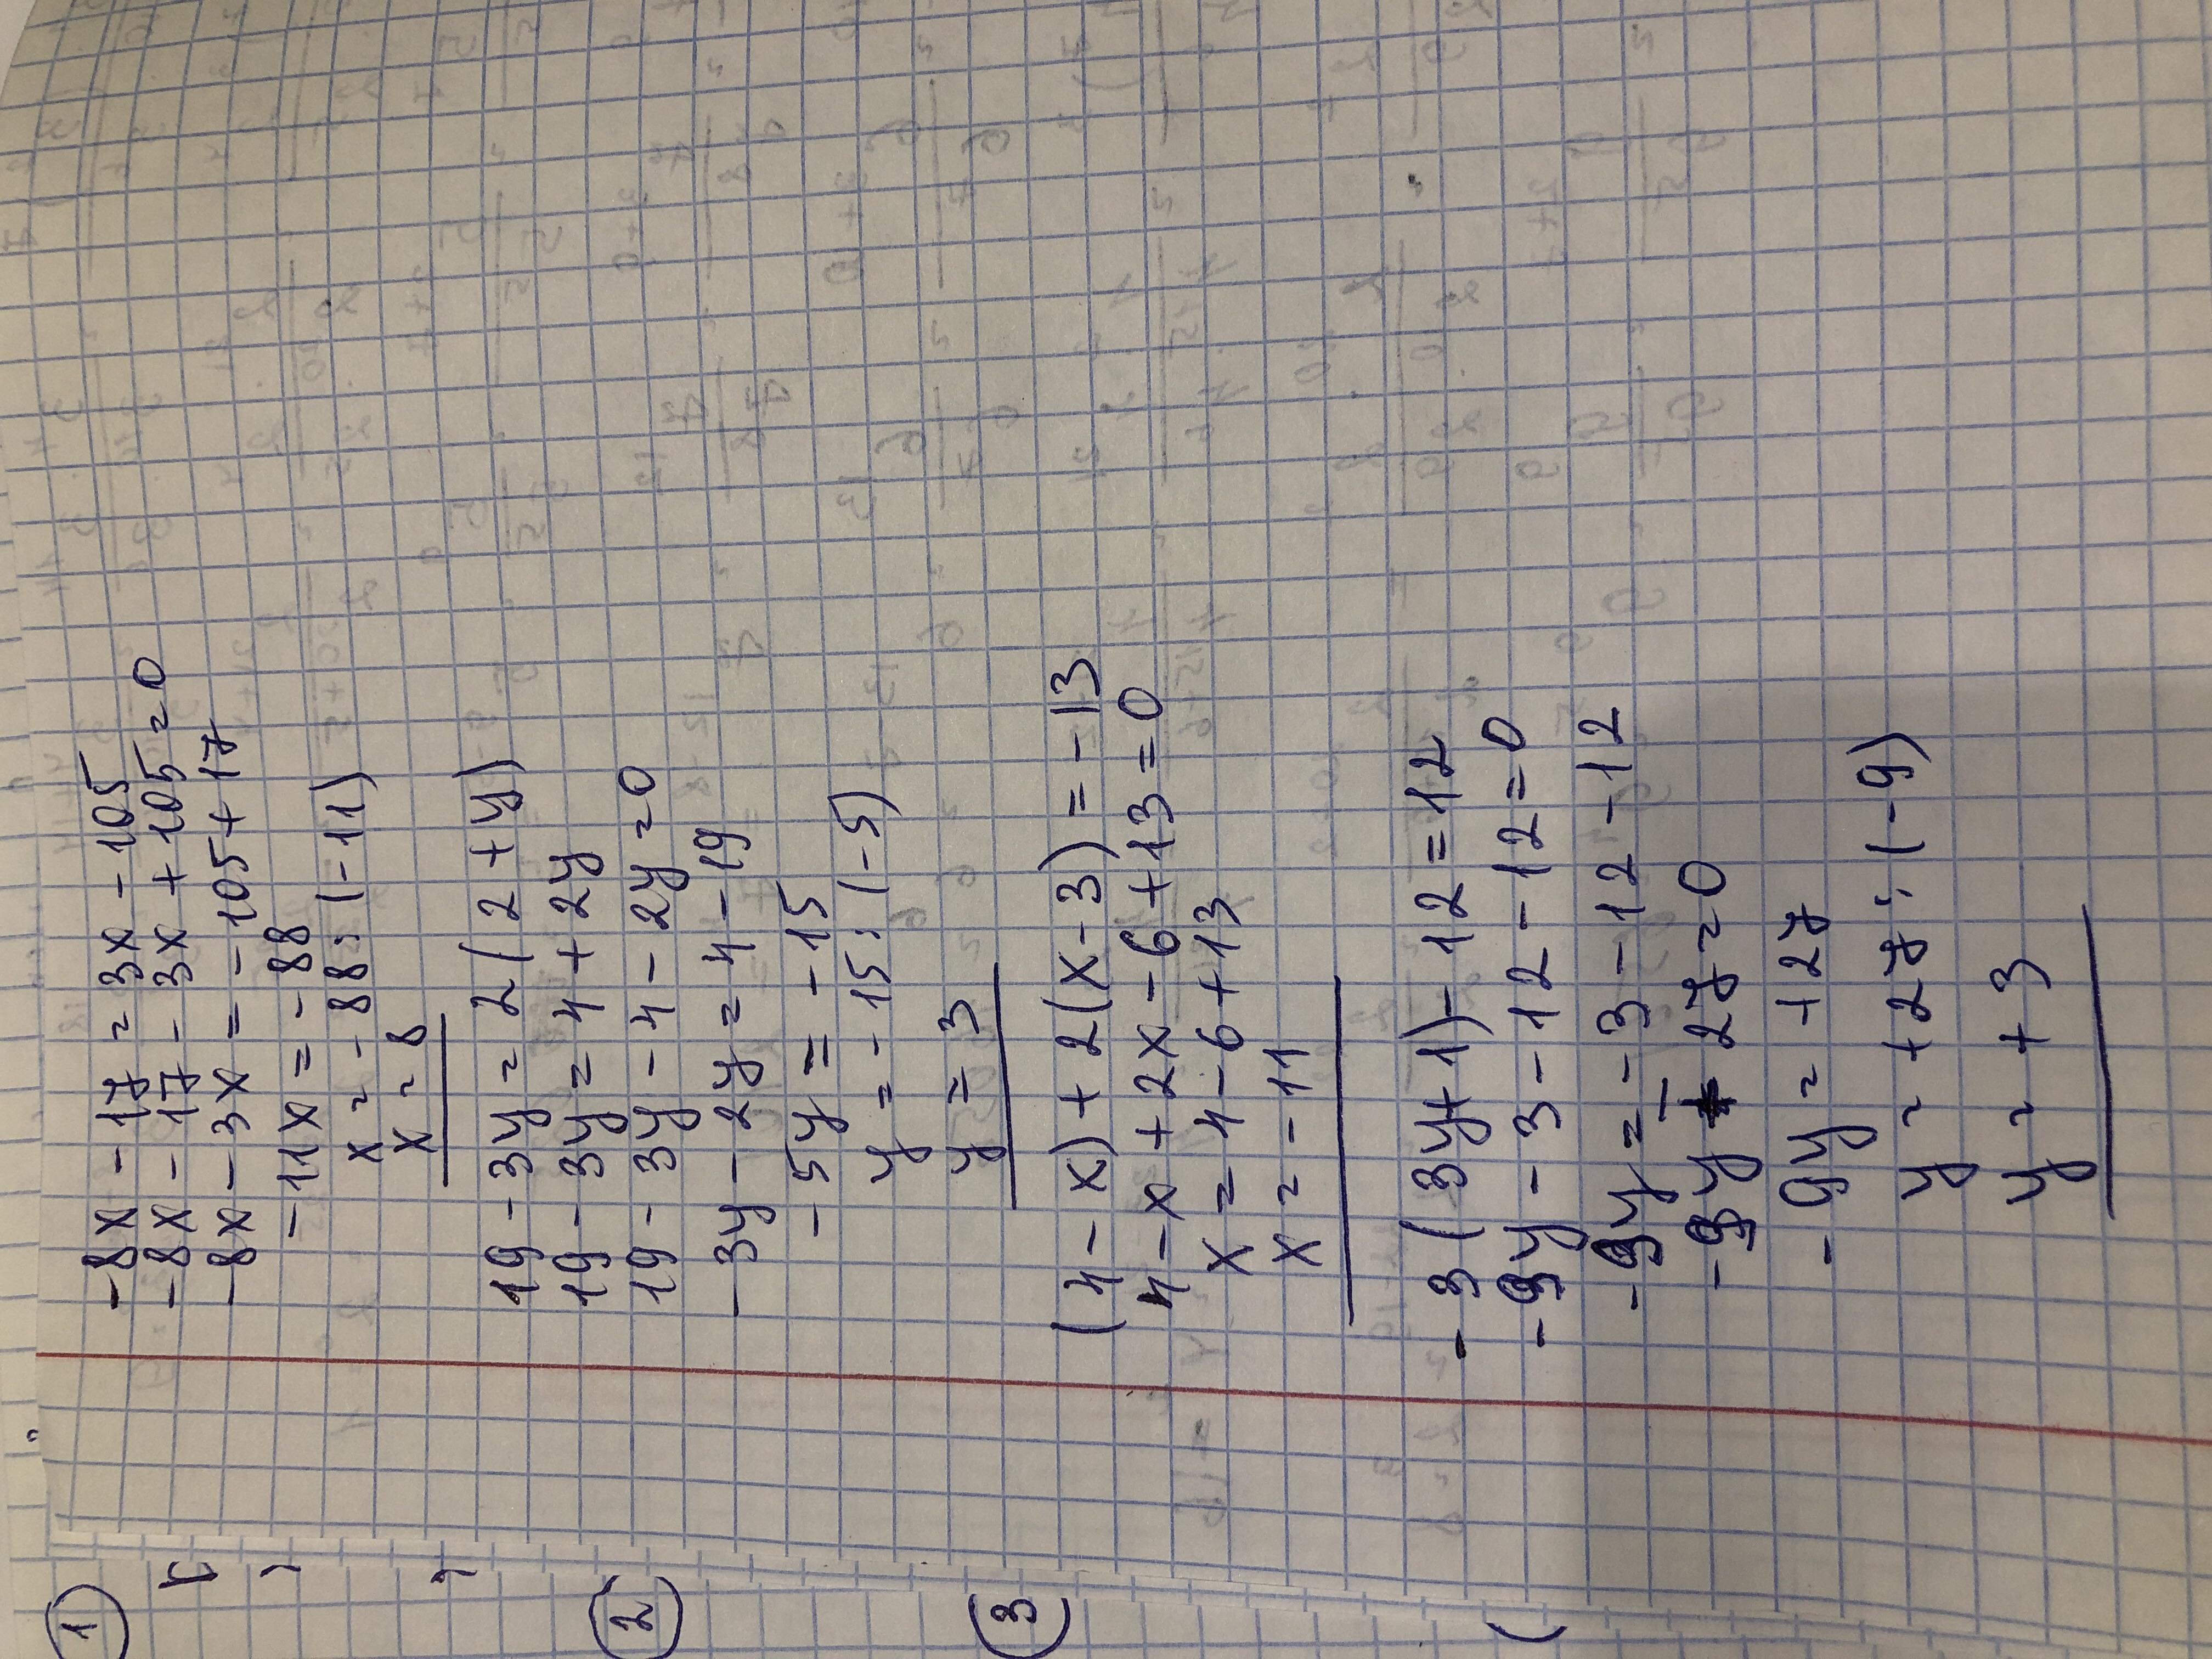 -8x - 17 = 3x - 105
-8x - 17 - 3x + 105 = 0
-8x - 3x = -105 + 17
-11x = -88
x = -88 : (-11)
x = 8
19 - 3y = 2(2 + y)
19 - 3y = 4 + 2y
19 - 3y - 4 - 2y = 0
-3y - 2y = 4 - 19
-5y = -15
y = -15 : (-5)
y = 3
(4 - x) + 2(x - 3) = -13
4 - x + 2x - 6 + 13 = 0
x = 4 - 6 + 13
x = -11
-3(3y + 1) - 12 = 12
-9y - 3 - 12 - 12 = 0
-9y = -3 - 12 - 12
-9y - 27 = 0
-9y = +27
y = +27 : (-9)
y = +3
1
2
3